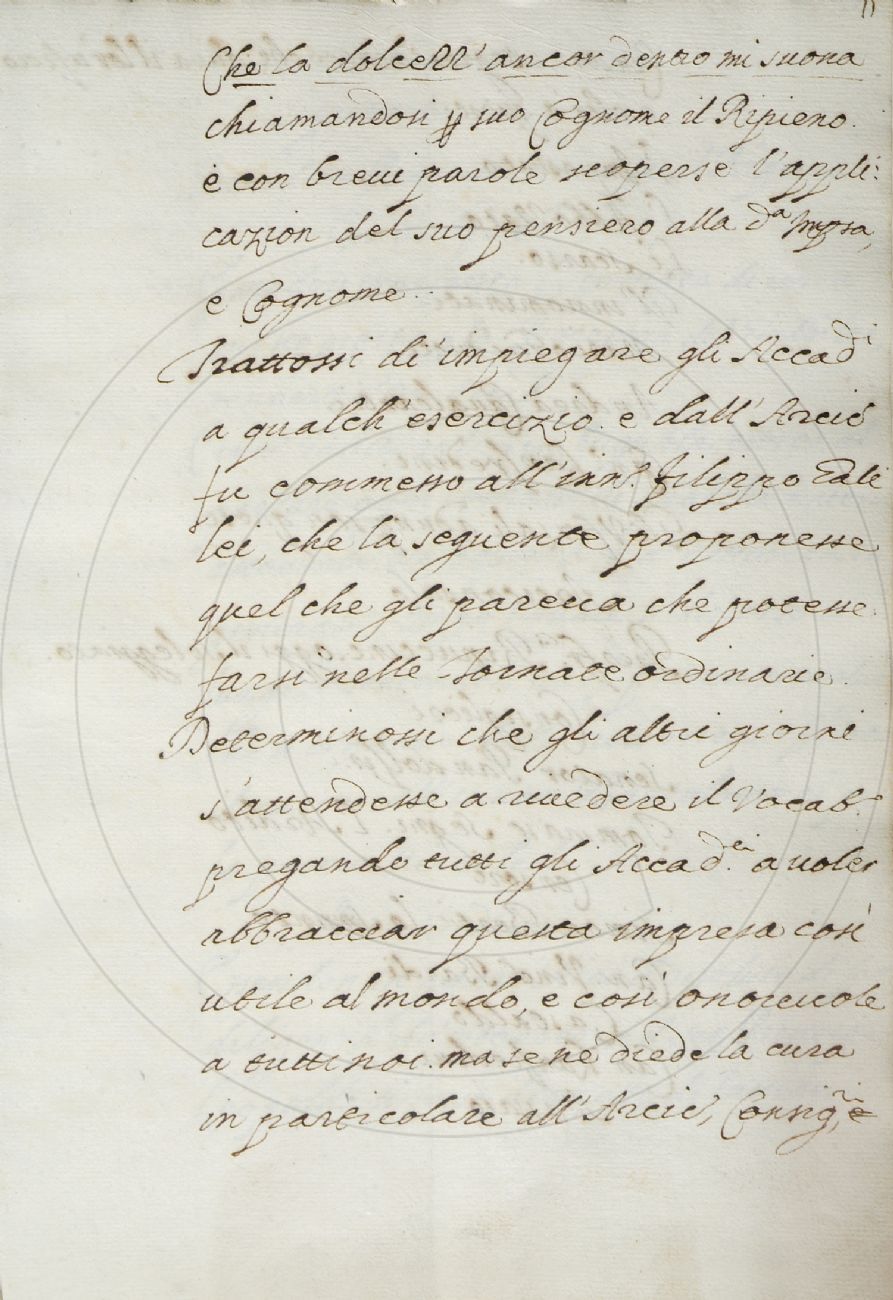 11
Che la dolcezz' ancor dentro mi suona
chiamandosi p suo Cognome il Ripieno.
e con breui parole scoperse l'appli:
cazion del suo pensiero alla da Impsa,
e Cognome.
Trattossi di impiegare gli Accadi
a qualch' esercizio. e dall' Arcic
fu commesso all' inno. Filippo
lei, che la seguente proponesse
quel che gli pareua che potesse
farsi nelle Tornate ordinarie.
Determinossi che gli altri giorni
s'attendesse a riuedere il Vocabo.
pregando tutti gli Accad.ci a voler
abbracciar questa impresa così
utile al mondo, e così onoreuole
a tutti noi. ma se ne diede la cura
in particolare all' Arcic', Consigri, e